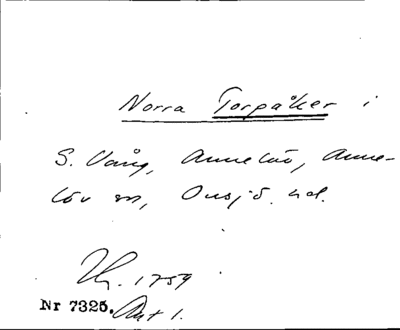 Norra Torpåker i
S. Vång, Annelöv, Anne-
löv sn, Onsjö hd.
1759
Nr 7325. Akt 1.